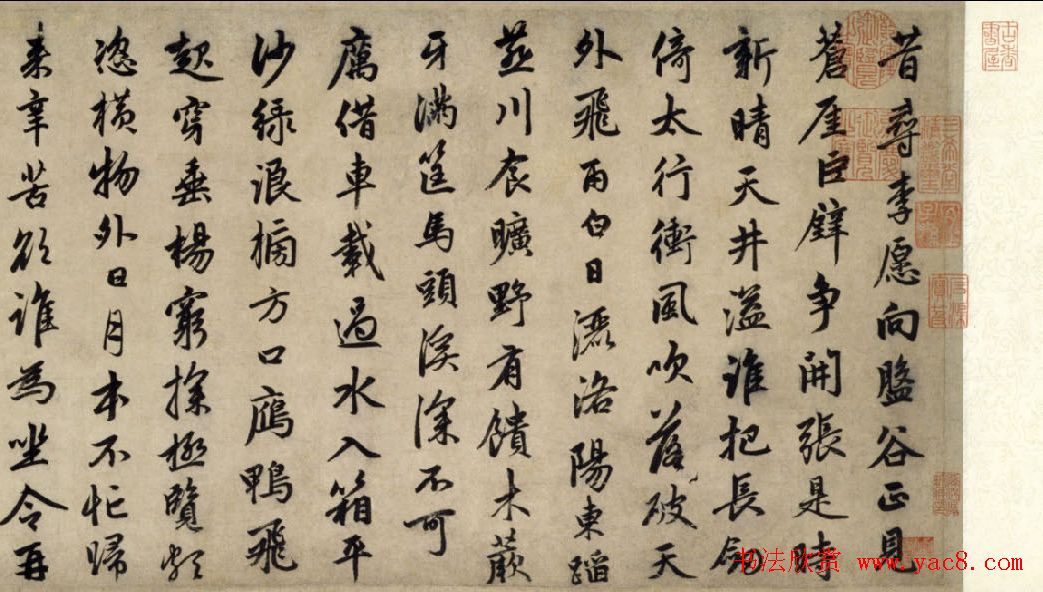 昔尋李愿向盤谷正見
蒼崖巨壁争開張是時
新晴天井溢誰把長劍
倚太行衝風吹落破天
外飛雨白日灑洛陽東蹈
燕川食曠野有饋木蕨
牙滿筐馬頭溪深不可
厲借車載過水入箱平
沙緑浪搒方口鴈鴨飛
起穿垂楊窮探極覽頗
恣横物外日月本不忙歸
来辛苦欲誰為坐令再
书法欣赏 www.yac8.com